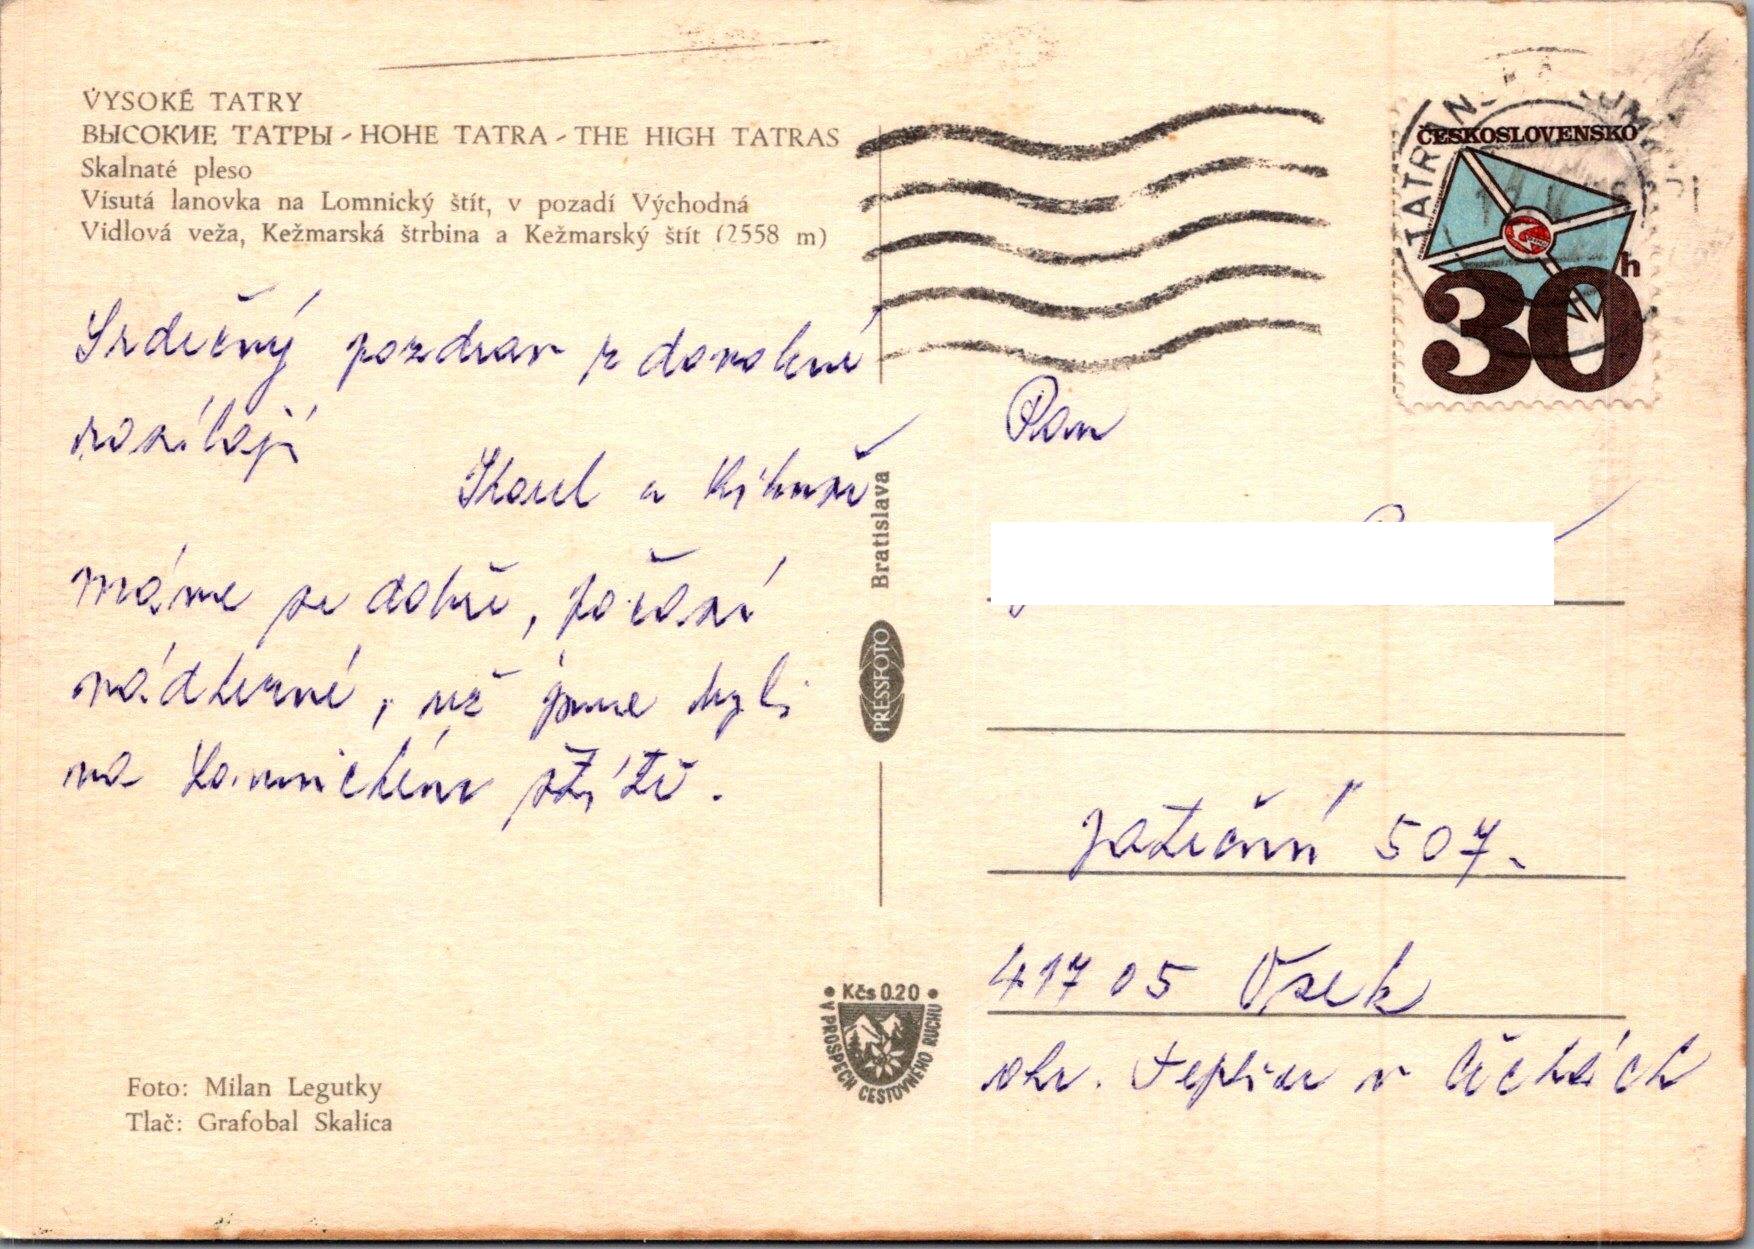 VYSOKÉ TATRY
ВЫСОКИЕ ТАТРЫ - HOHE TATRA - THE HIGH TATRAS
Skalnaté pleso
Visutá lanovka na Lomnický štít, v pozadí Východná
Vidlová veža, Kežmarská štrbina a Kežmarský štít (2558 m)
Srdečný pozdrav z dovolené
zasílají
Karel a
máme se dobře, počasí
nádherné, už jsme byli
na Lomnickém štítě.
Foto: Milan Legutky
Tlač: Grafobal Skalica
Bratislava
PRESSFOTO
Kčs 0.20
V PROSPECH CESTOVNÉHO RUCHU
TATRANSKÁ
ČESKOSLOVENSKO
30h
Pan
507
417 05 Osek
okr. Teplice v Čechách